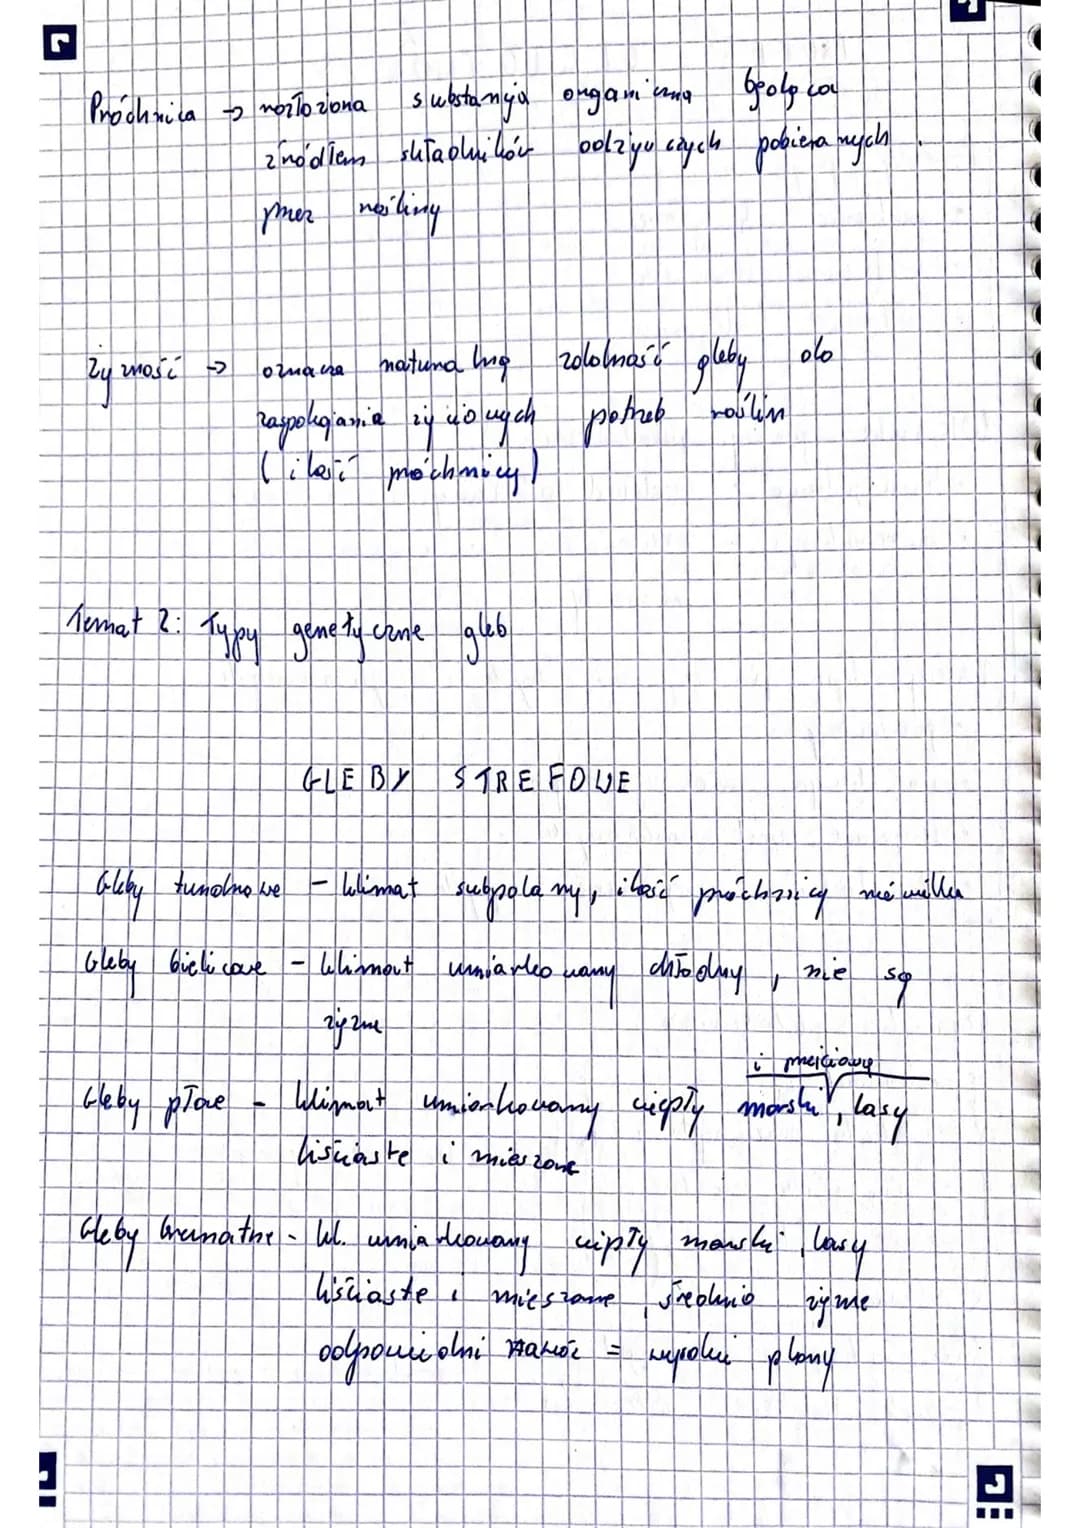 Próchnica → rozłożona substancja organiczna będąca
źródłem składników odżywczych pobieranych
przez rośliny
żyzność → oznacza naturalną zdolność gleby do
zaspokajania życiowych potrzeb roślin
(ilość próchnicy)
Temat 2: Typy genetyczne gleb
GLEBY STREFOWE
Gleby tundrowe - klimat subpolarny, ilość próchnicy niewielka
Gleby bielicowe - klimat umiarkowany chłodny, nie są
żyzne
i przejściowy
Gleby płowe - klimat umiarkowany ciepły morski, lasy
liściaste i mieszane
Gleby brunatne - kl. umiarkowany ciepły morski, lasy
liściaste i mieszane, średnio żyzne
odpowiedni nawóz = wysokie plony